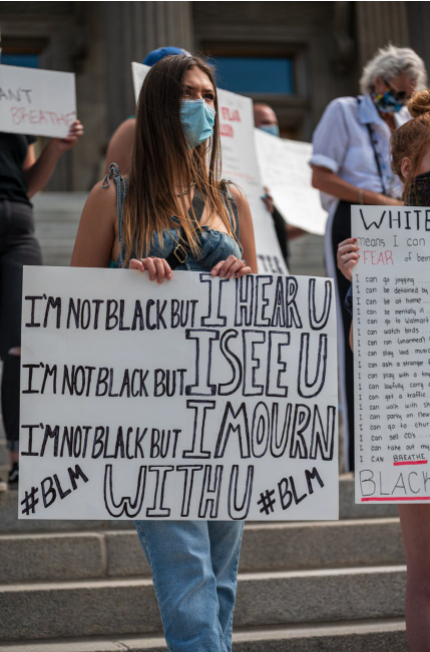 ANT
BREATHE
I'M NOT BLACK BUT I HEAR U
I'M NOT BLACK BUT I SEE U
I'M NOT BLACK BUT I MOURN
#BLM WITH U #BLM
WHITE
means I can
FEAR of bein
I can go jogging
I can be detained by
I can be at home
I can be mentally
I can go to Walmart
I can watch birds
I can run (unarmed)
I can play loud music
I can ask a stranger f
I can play with a toy
I can lawfully carry
I can get a traffic
I can walk with sk
I can party on new
I can go to chur
I can sell CDs
I can take out my
I CAN BREATHE
BLACK